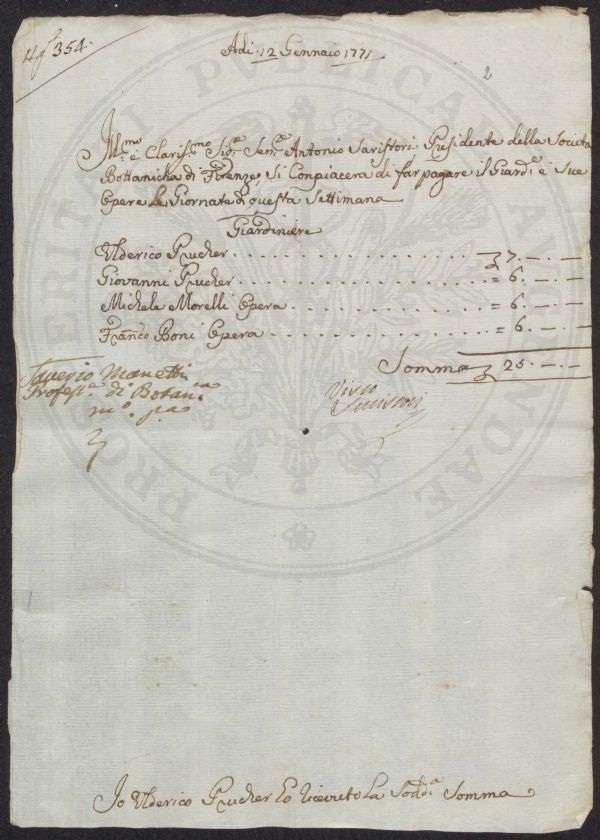 354.
Adi. 12 Gennaio 1771.
2
Ill.mo e Claris.mo Sig.re Sen.re Antonio Saristori Presidente della Societa
Bottanicha di Firenze, Si Conpiacera di far pagare il Giard.e e Sue
Opere le Giornate di questa Settimana
Giardiniere
Ulderico Prucher . . . . 7. — . —
Giovanni Prucher . . . . = 6. — . —
Michele Morelli Opera . . . . = 6. — . —
Fran.co Boni Opera . . . . = 6. — . —
Somma 25. — . —
Saverio Manetti
Profes.e di Botan.ca
m.o p.a
Visto
Io Ulderico Prucher Eo Riceuto La Sod.a Somma
PROSPERITATI PUBLICAE AUGENDAE